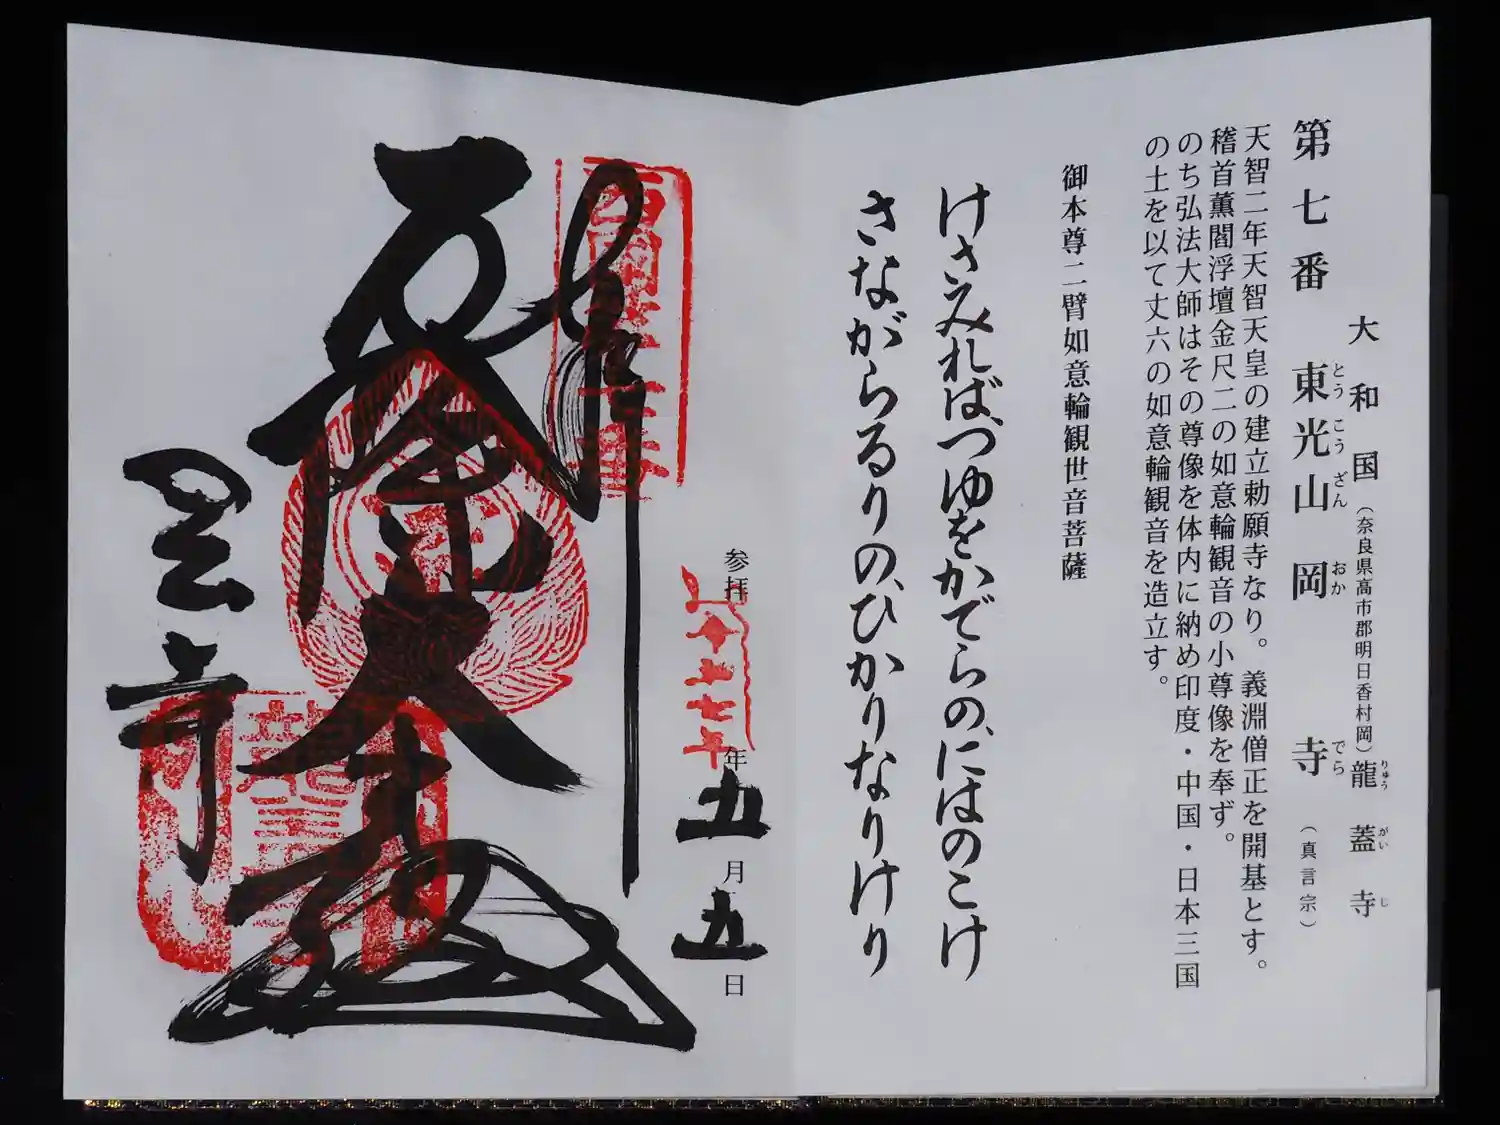 大和国（奈良県高市郡明日香村岡）龍蓋寺
りゅう がい じ
第七番 東光山 岡寺（真言宗）
とう こう ざん おか でら
天智二年天智天皇の建立勅願寺なり。義淵僧正を開基とす。
稽首薫閻浮壇金尺二の如意輪観音の小尊像を奉ず。
のち弘法大師はその尊像を体内に納め印度・中国・日本三国
の土を以て丈六の如意輪観音を造立す。
御本尊二臂如意輪観世音菩薩
けさみれば、つゆをかでらの、にはのこけ
さながらるりの、ひかりなりけり
参拝
年五月五日
奉拝
岡寺